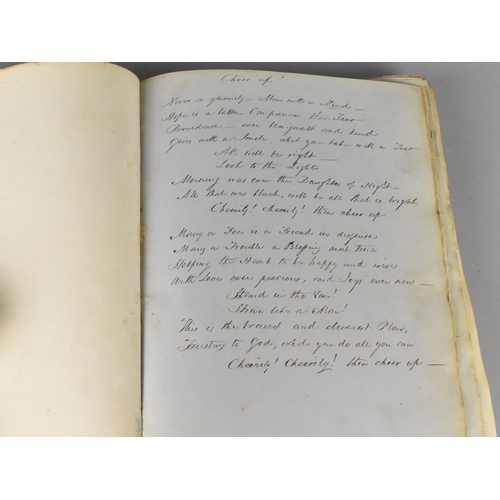 Cheer up!
Never go gloomily — Man with a Mind —
Hope is a better Companion than Fear
Providence — ever benignant and kind
Gives with a Smile, what you take with a Tear
All will be right —
Look to the Light
Morning was ever the Daughter of Night —
All that was black, will be all that is bright
Cheerily! cheerily! then cheer up
Many a Foe is a Friend in disguise
Many a Trouble a Blessing most true
Helping the Heart to be happy and wise
With Love ever precious, and Joys ever new —
Stand in the Van!
Strive like a Man!
This is the bravest and cleverest Plan,
Trusting to God, while you do all you can
Cheerily! Cheerily! then cheer up —